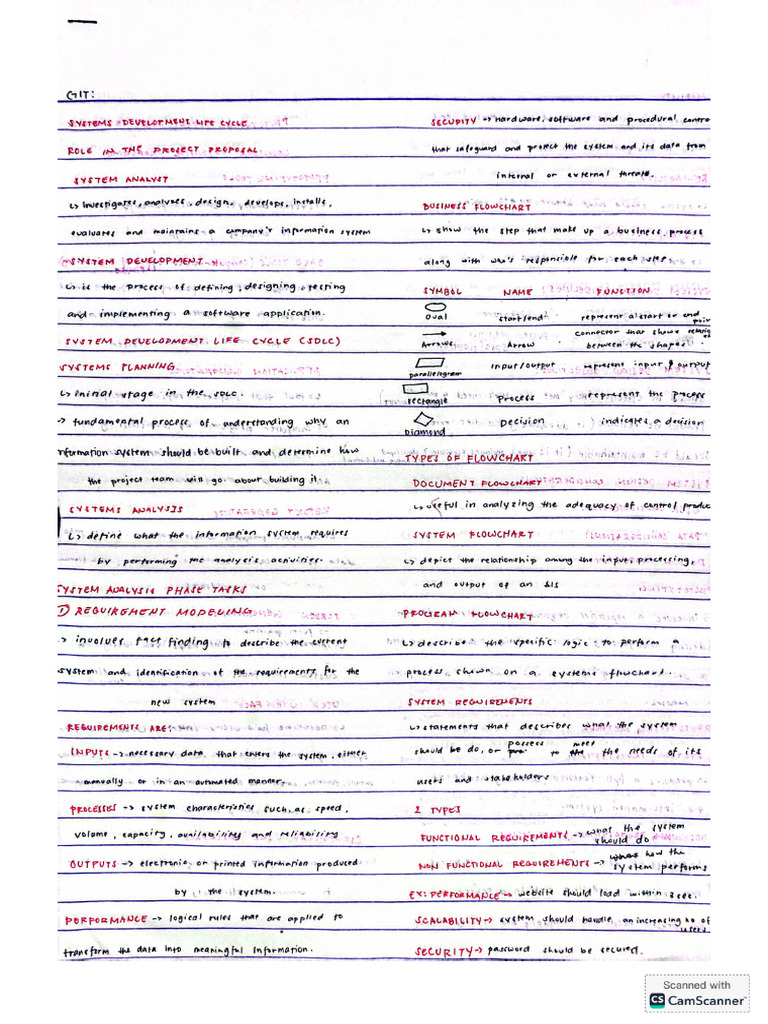 GIT:
SYSTEMS DEVELOPMENT LIFE CYCLE
ROLE IN THE PROJECT PROPOSAL
SYSTEM ANALYST
↳ investigates, analyzes, design, develops, installs,
evaluates and maintains a company's information system
SYSTEM DEVELOPMENT
↳ is the process of defining, designing, testing
and implementing a software application.
SYSTEM DEVELOPMENT LIFE CYCLE (SDLC)
SYSTEMS PLANNING
↳ initial stage in the SDLC.
→ fundamental process of understanding why an
nformation system should be built and determine how
the project team will go about building it.
SYSTEMS ANALYSIS
↳ define what the information system requires
by performing the analysis activities.
SYSTEM ANALYSIS PHASE TASKS
① REQUIREMENT MODELING
→ involves fact finding to describe the current
system and identification of the requirements for the
new system
REQUIREMENTS ARE:
INPUTS → necessary data that enters the system, either
manually or in an automated manner.
PROCESSES → system characteristics such as speed,
volume, capacity, availability and reliability
OUTPUTS → electronic or printed information produced
by the system.
PERFORMANCE → logical rules that are applied to
transform the data into meaningful information.
SECURITY → hardware, software and procedural contro
that safeguard and protect the system and its data from
internal or external threats.
BUSINESS FLOWCHART
↳ show the step that make up a business process
along with who's responsible for each step.
SYMBOL NAME FUNCTION
Oval start/end represent a start or end
point
Arrows Arrow connector that shows relatio
between the shapes
parallelogram input/output represent input & output
rectangle Process represent the process
Diamond Decision indicates a decision
TYPES OF FLOWCHART
DOCUMENT FLOWCHART
↳ useful in analyzing the adequacy of control produc
SYSTEM FLOWCHART
↳ depict the relationship among the input, processing,
and output of an AIS
PROGRAM FLOWCHART
↳ describe the specific logic to perform a
process shown on a systems flowchart.
SYSTEM REQUIREMENTS
↳ statements that describes what the system
should be do, or possess to meet the needs of its
users and stakeholders
2 TYPES
FUNCTIONAL REQUIREMENTS → what the system
should do
NON FUNCTIONAL REQUIREMENTS → how the
system performs
EX: PERFORMANCE → website should load within 3 sec.
SCALABILITY → system should handle an increasing no of
users
SECURITY → password should be secured.
Scanned with
CS CamScanner